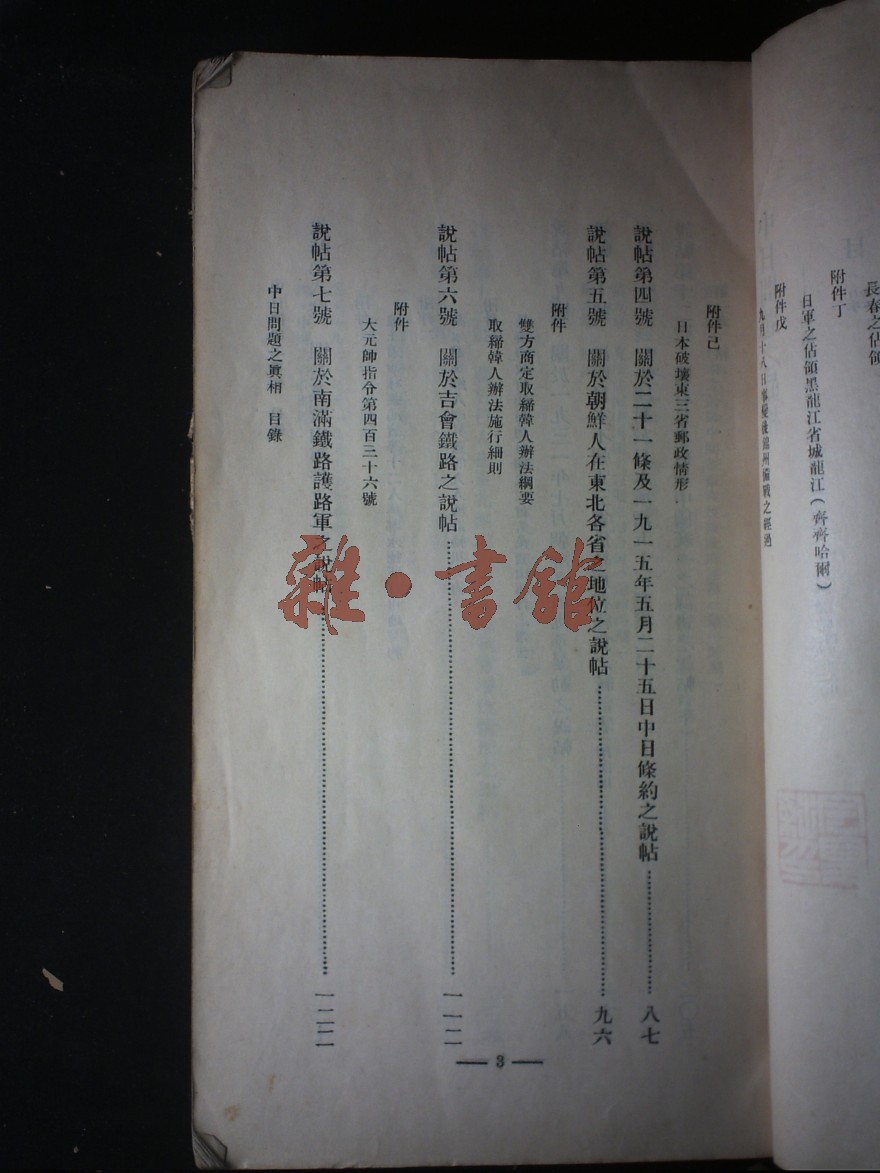 長春之佔領
附件丁
日軍之佔領黑龍江省城龍江(齊齊哈爾)
附件戊
九月十八日事變後錦州備戰之經過
附件己
日本破壞東三省郵政情形
說帖第四號 關於二十一條及一九一五年五月二十五日中日條約之說帖……八七
說帖第五號 關於朝鮮人在東北各省之地位之說帖……九六
附件
雙方商定取締韓人辦法綱要
取締韓人辦法施行細則
說帖第六號 關於吉會鐵路之說帖……一一二
附件
大元帥指令第四百三十六號
說帖第七號 關於南滿鐵路護路軍之說帖……一二二
中日問題之眞相 目錄
3
雜·書館